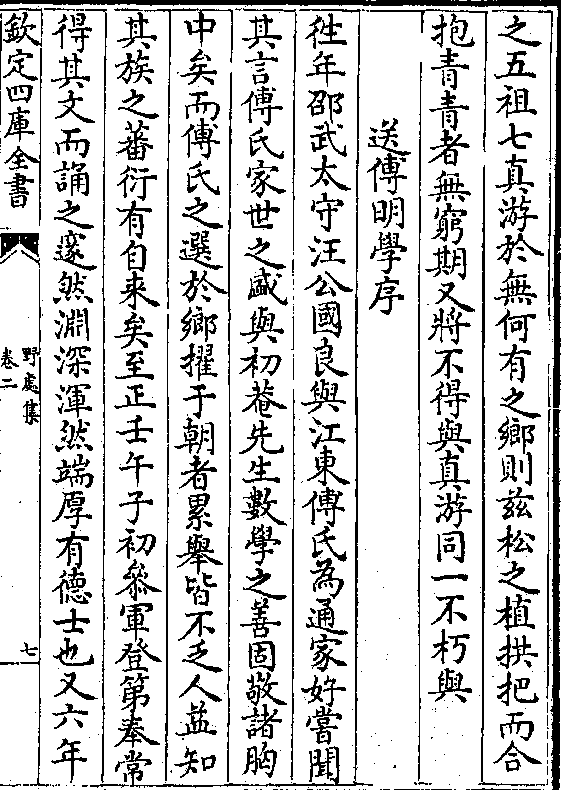 之五祖七真游於無何有之鄉則兹松之植拱把而合
抱青青者無窮期又將不得與真游同一不朽與
送傅明學序
徃年邵武太守汪公國良與江東傅氏為通家好嘗聞
其言傅氏家世之盛與初菴先生數學之善固敬諸胸
中矣而傅氏之選於鄉擢于朝者累舉皆不乏人益知
其族之蕃衍有自来矣至正壬午子初叅軍登第奉常
得其文而誦之邃然淵深渾然端厚有德士也又六年
欽定四庫全書
野處集
卷二
七